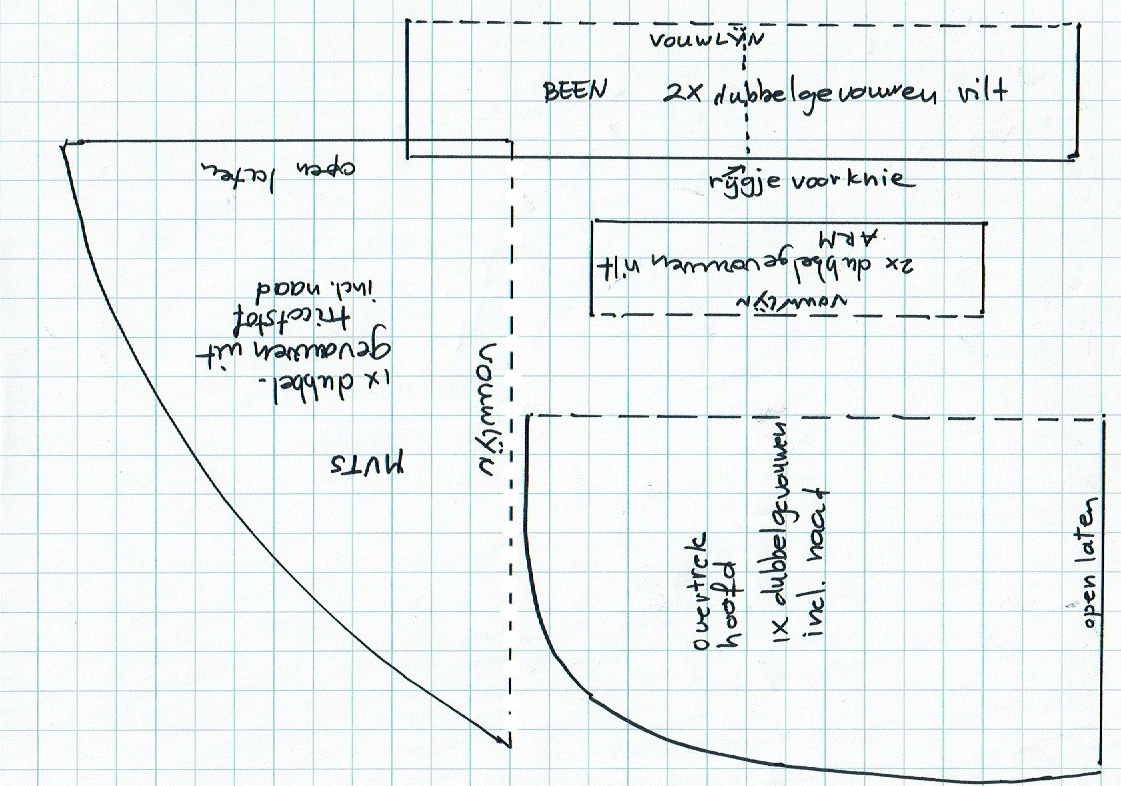 VOUWLIJN
BEEN 2X dubbelgevouwen vilt
rijgje voor knie
open laten
ARM
2x dubbelgevouwen vilt
vouwlijn
MUTS
1x dubbel-
gevouwen uit
tricotstof
incl. naad
vouwlijn
overtrek
hoofd
1x dubbelgevouwen
incl. naat
open laten